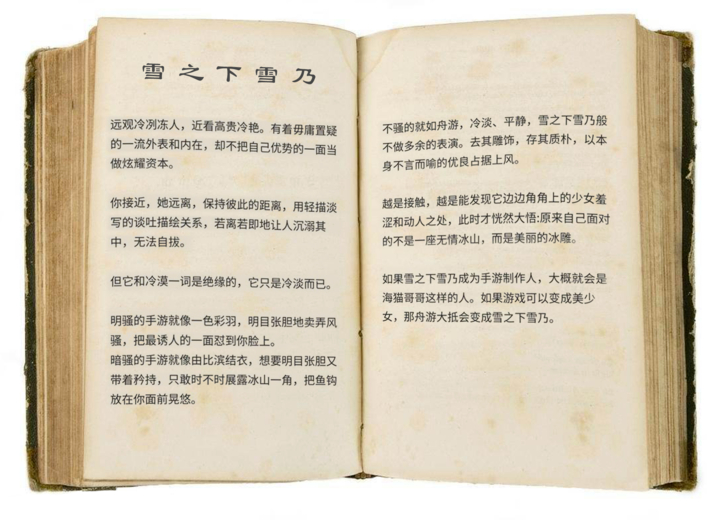 雪之下雪乃
远观冷冽冻人，近看高贵冷艳。有着毋庸置疑
的一流外表和内在，却不把自己优势的一面当
做炫耀资本。
你接近，她远离，保持彼此的距离，用轻描淡
写的谈吐描绘关系，若离若即地让人沉溺其
中，无法自拔。
但它和冷漠一词是绝缘的，它只是冷淡而已。
明骚的手游就像一色彩羽，明目张胆地卖弄风
骚，把最诱人的一面怼到你脸上。
暗骚的手游就像由比滨结衣，想要明目张胆又
带着矜持，只敢时不时展露冰山一角，把鱼钩
放在你面前晃悠。
不骚的就如舟游，冷淡、平静，雪之下雪乃般
不做多余的表演。去其雕饰，存其质朴，以本
身不言而喻的优良占据上风。
越是接触，越是能发现它边边角角上的少女羞
涩和动人之处，此时才恍然大悟:原来自己面对
的不是一座无情冰山，而是美丽的冰雕。
如果雪之下雪乃成为手游制作人，大概就会是
海猫哥哥这样的人。如果游戏可以变成美少
女，那舟游大抵会变成雪之下雪乃。